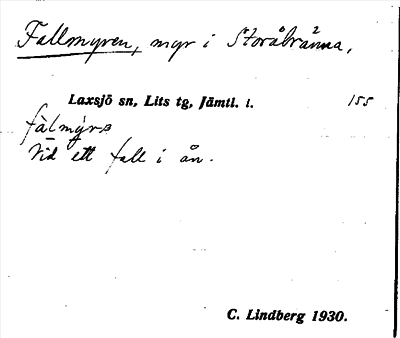 Fallmyren, myr i Storåbränna,
Laxsjö sn, Lits tg, Jämtl. l. 155
Vid ett fall i ån.
C. Lindberg 1930.